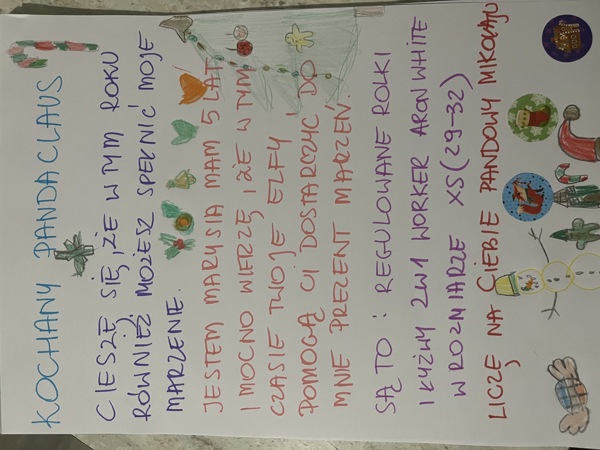 KOCHANY PANDACLAUS
CIESZĘ SIĘ, ŻE W TYM ROKU
RÓWNIEŻ MOŻESZ SPEŁNIĆ MOJE
MARZENIE.
JESTEM MARYSIA MAM 5 LAT
I MOCNO WIERZĘ, ŻE W TYM
CZASIE TWOJE ELFY
POMOGĄ CI DOSTARCZYĆ DO
MNIE PREZENT MARZEŃ.
SĄ TO : REGULOWANE ROLKI
I ŁYŻWY 2W1 WORKER ARON WHITE
W ROZMIARZE XS (29-32)
LICZĘ NA CIEBIE PANDOWY MIKOŁAJU